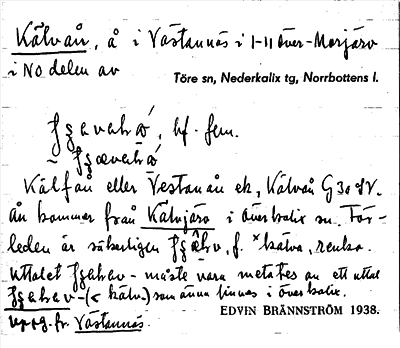 Kälvån, å i Västannäs i 1-11 över-Morjärv
i NO delen av
Töre sn, Nederkalix tg, Norrbottens l.
bf. fem.
~
Kälfån eller Vestanån ek, Kälvån G 30 SV.
ån kommer från Kälvjärv i överkalix sn. För-
leden är säkerligen f. *kälva, renko.
uttalet måste vara metates av ett uttal
(< kälv-) som ännu finnes i överkalix.
EDVIN BRÄNNSTRÖM 1938.
uppg. fr. Västannäs.